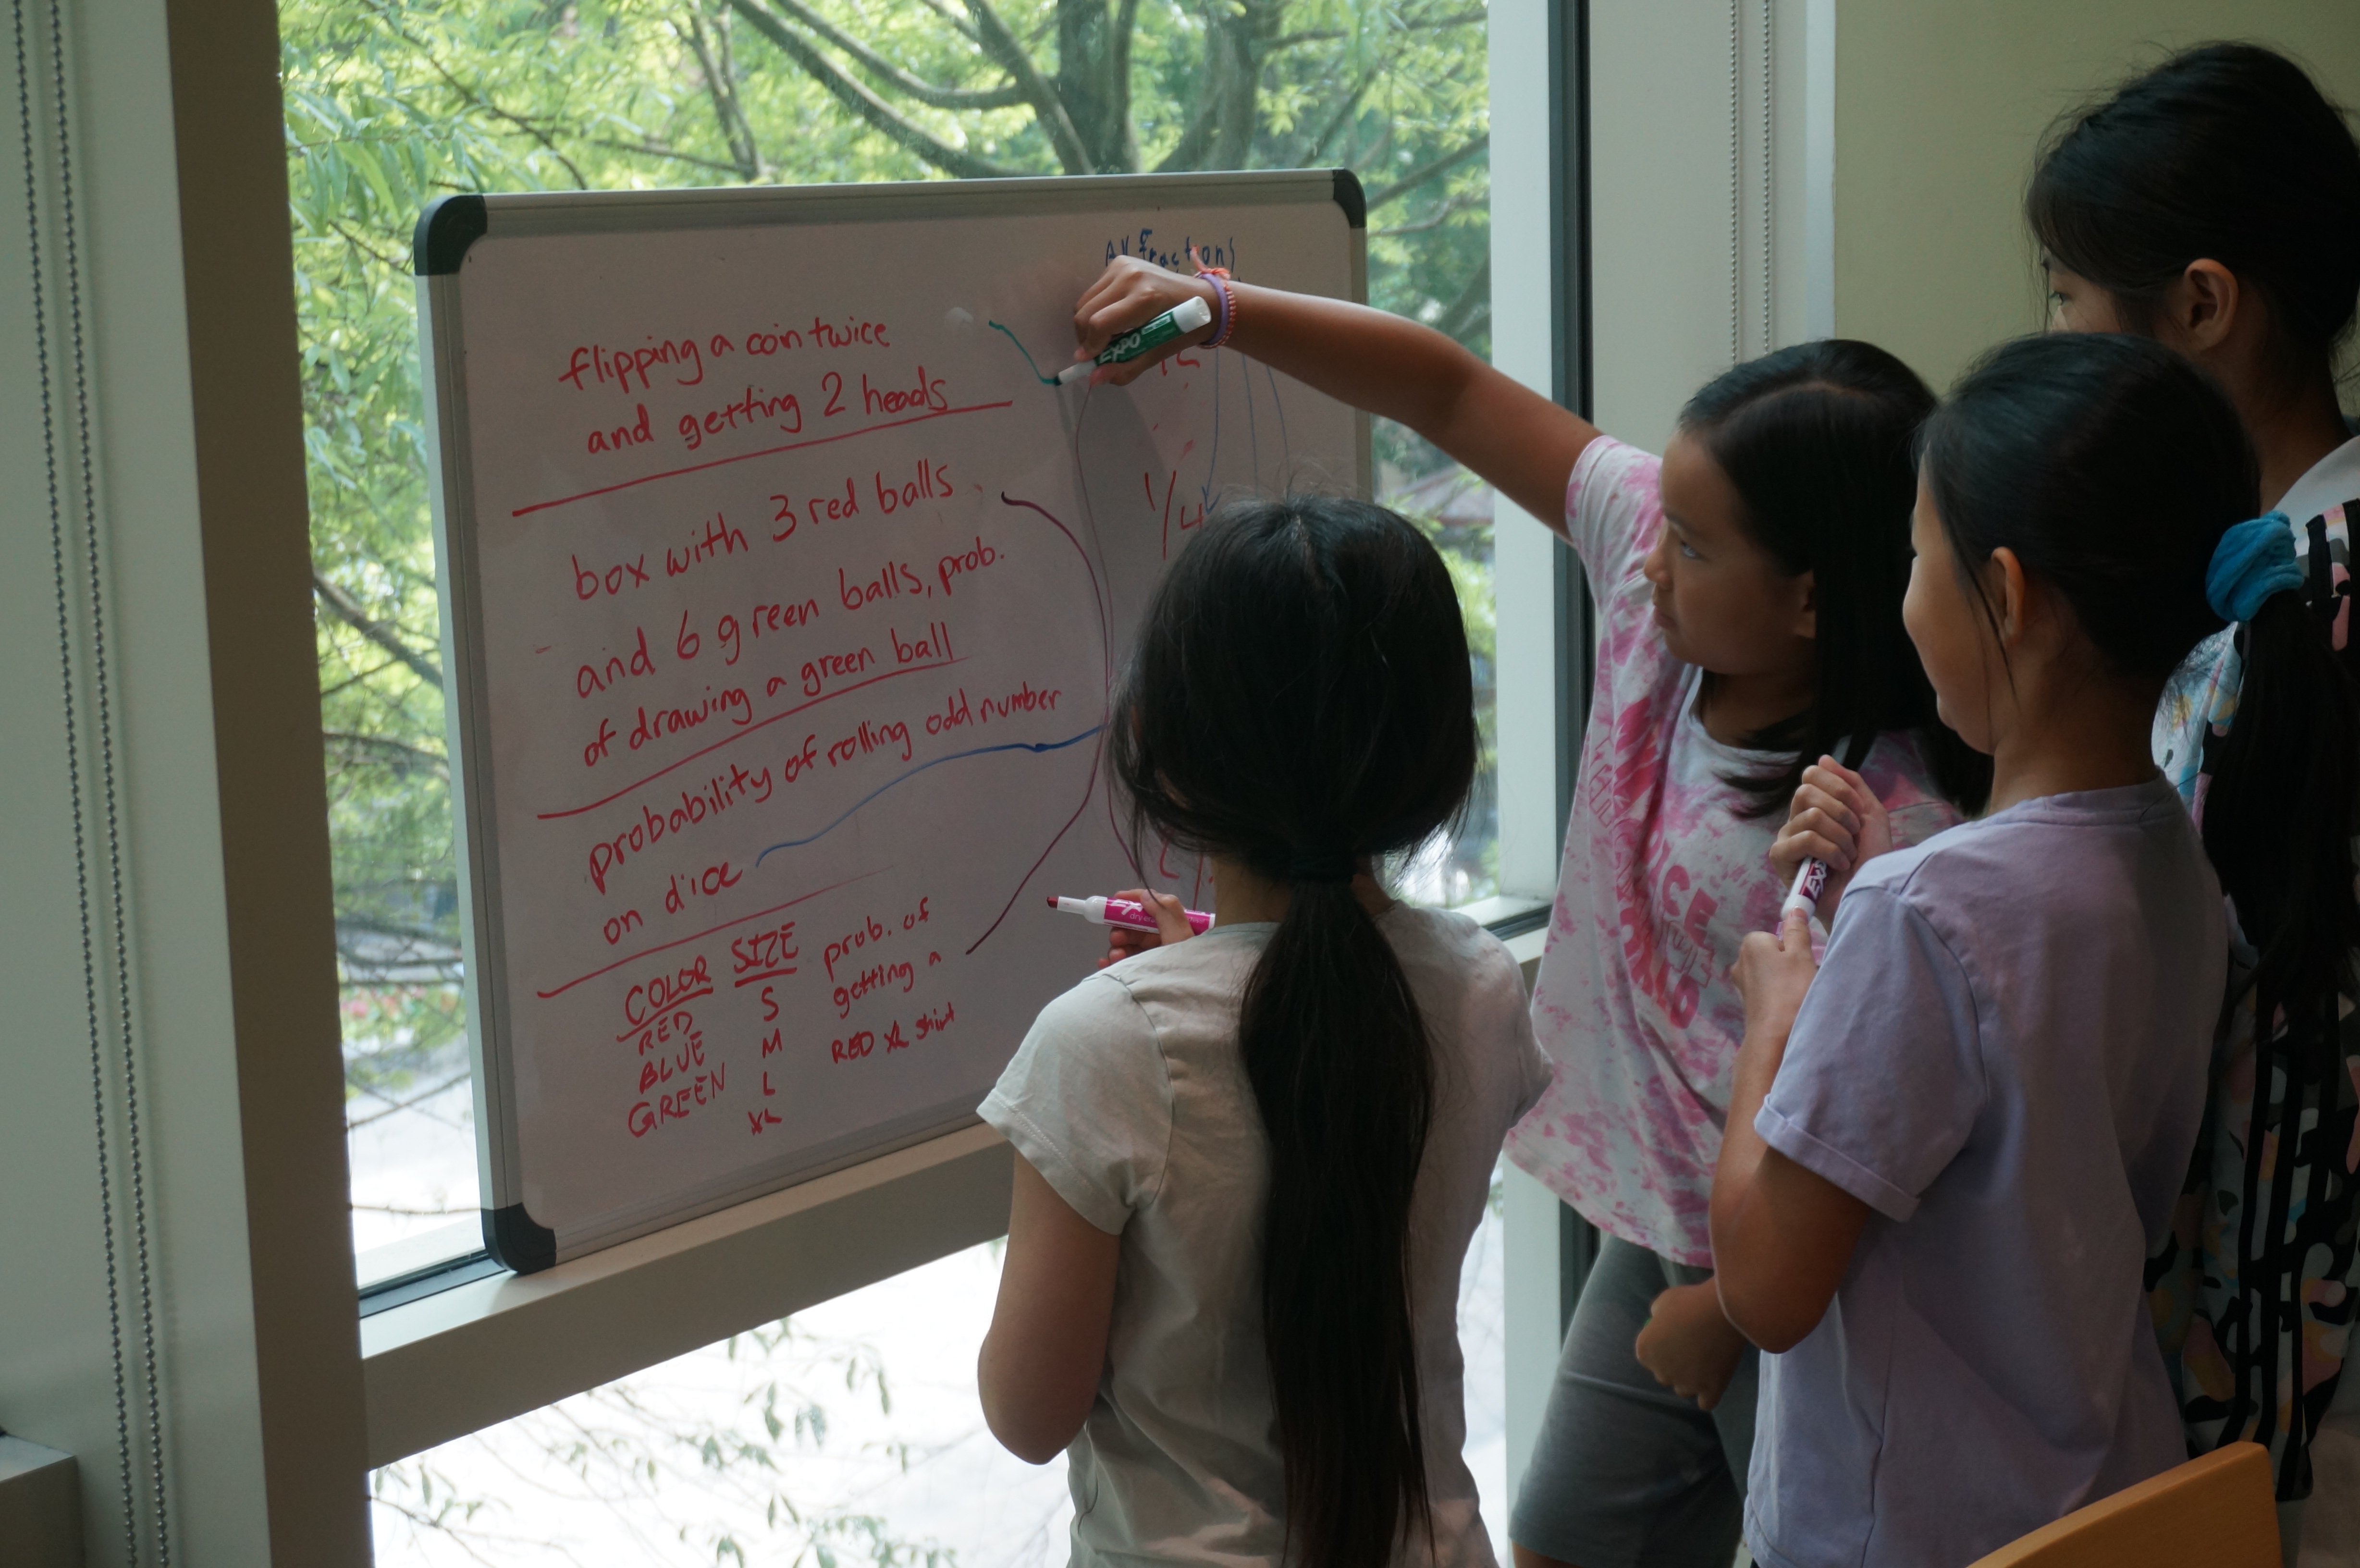 fractions
flipping a coin twice
and getting 2 heads
box with 3 red balls
and 6 green balls, prob.
of drawing a green ball
probability of rolling odd number
on dice
COLOR SIZE
RED S
BLUE M
GREEN L
XL
prob. of
getting a
RED XL shirt
1/4
EXPO